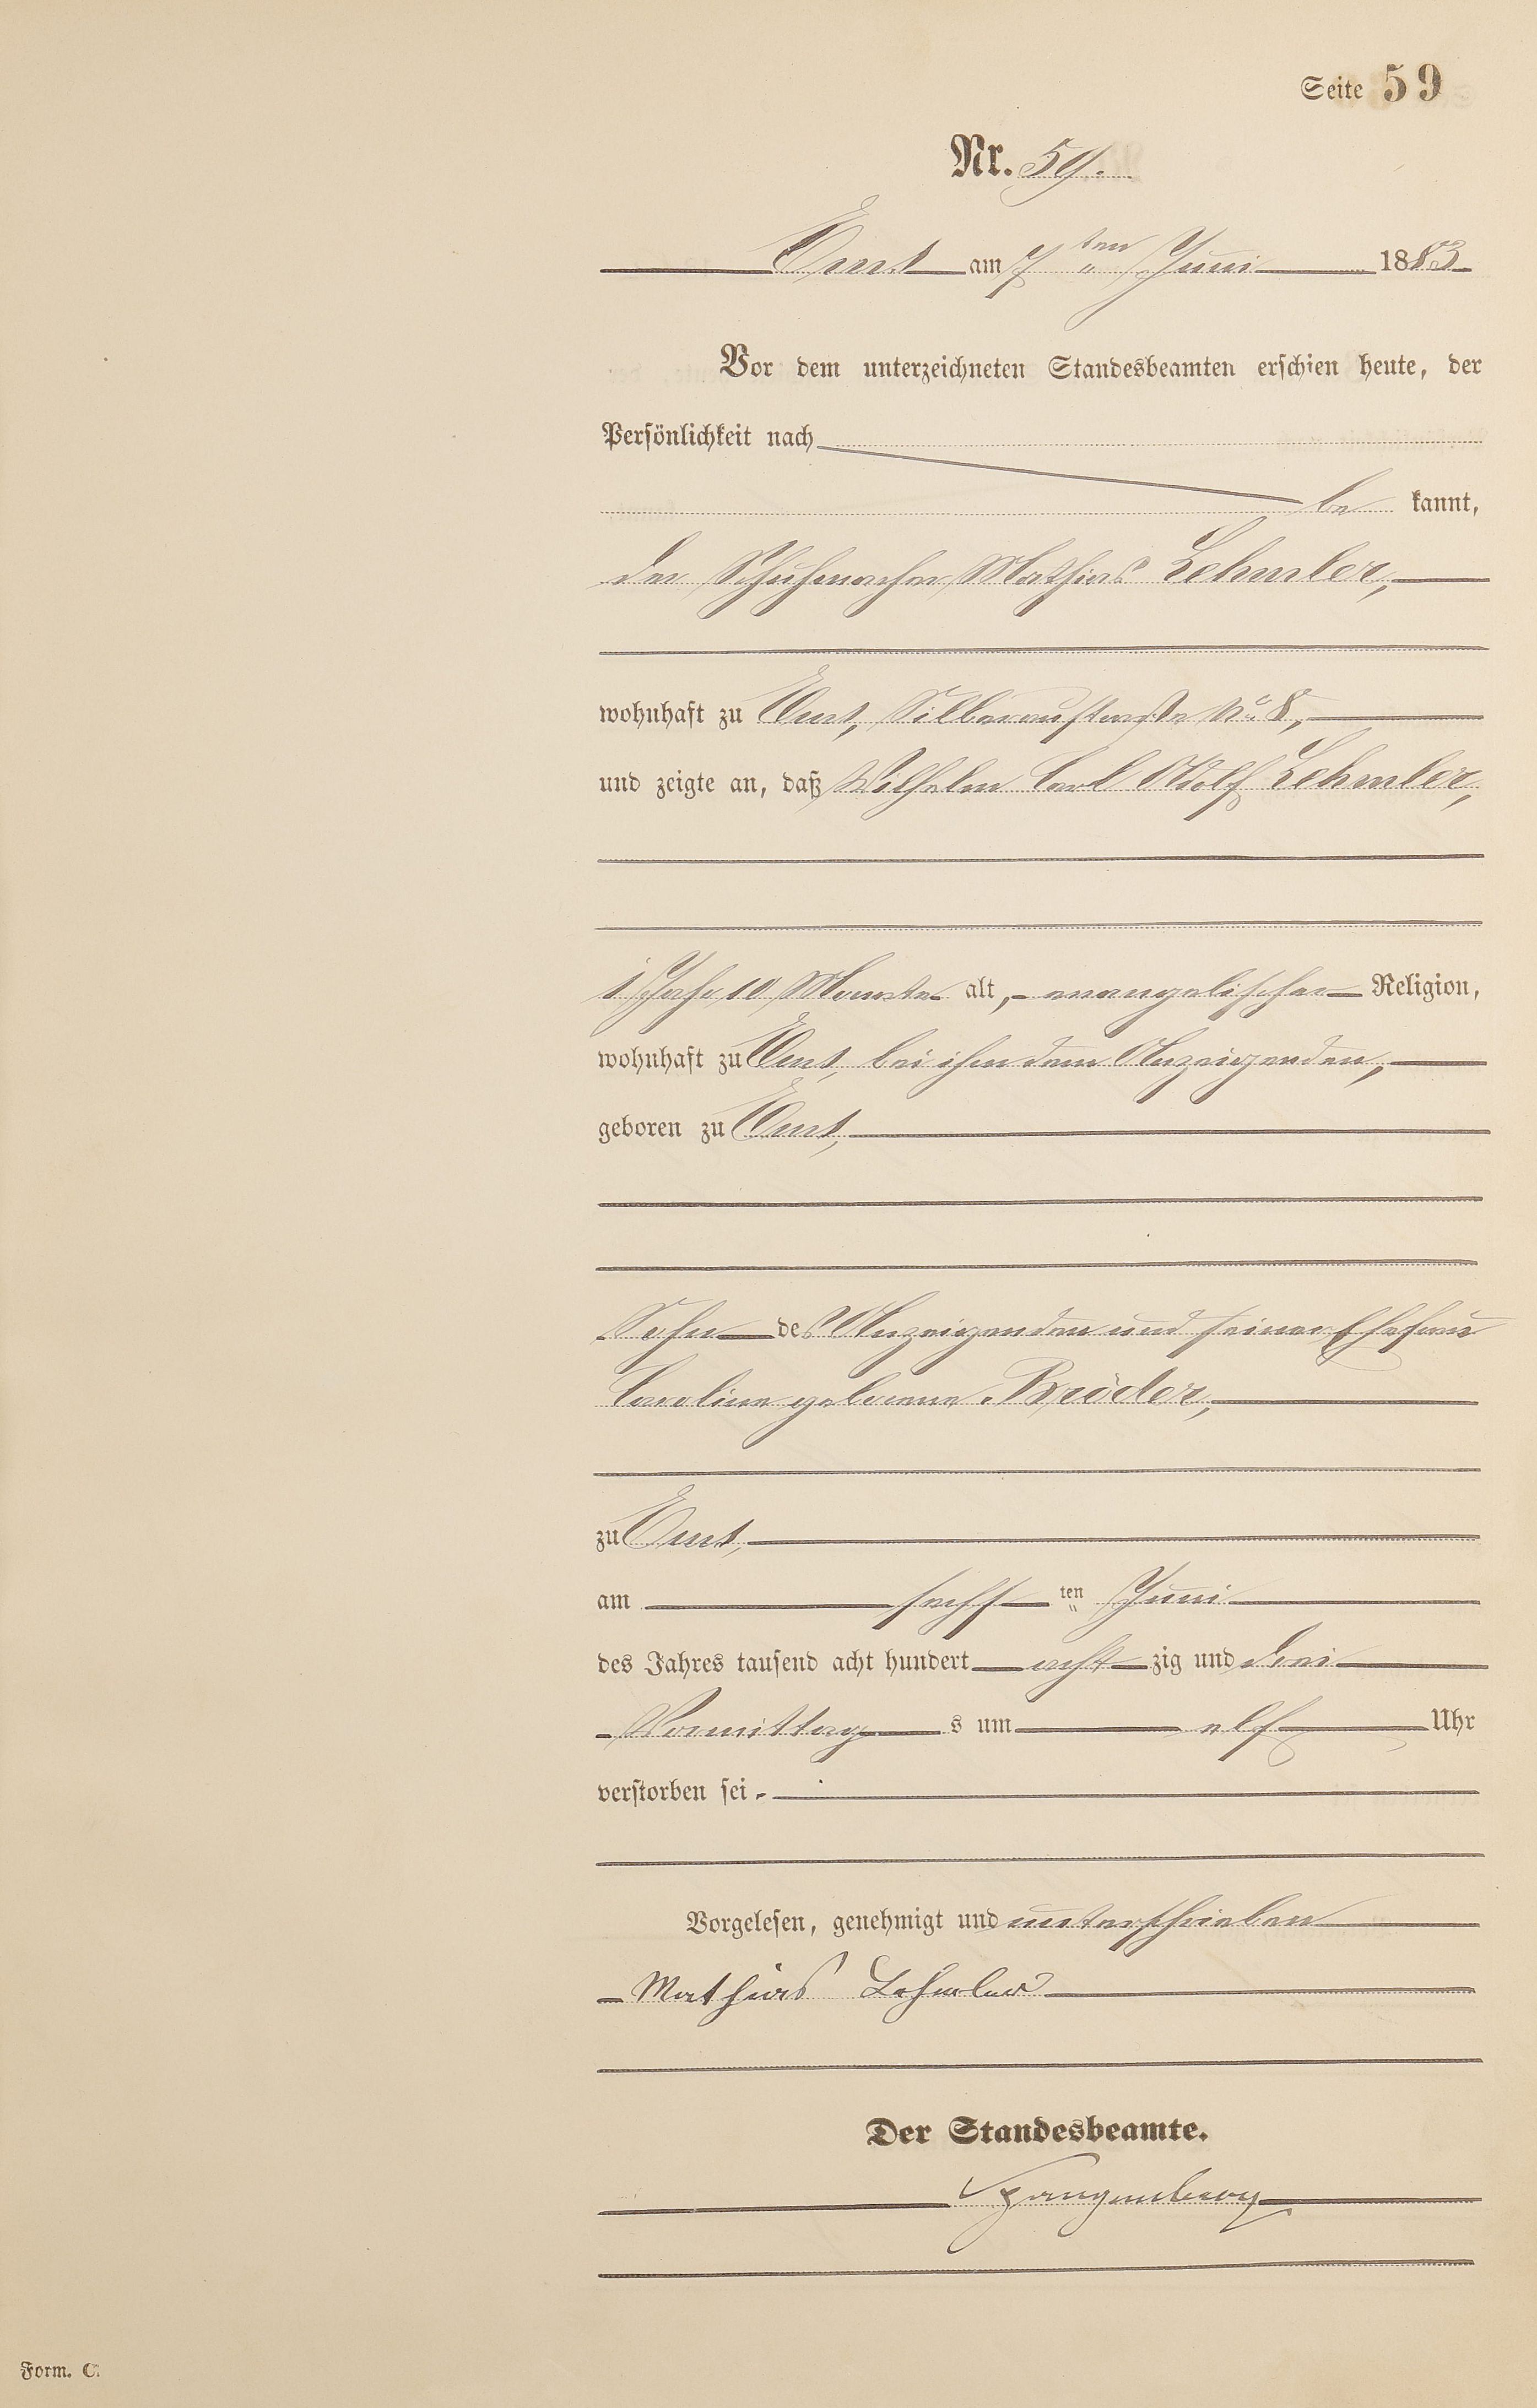 Seite 59
Nr. 59.
Ems am 7 ten Juni 1883
Vor dem unterzeichneten Standesbeamten erschien heute, der
Persönlichkeit nach
be kannt,
der Schuhmacher Mathias Lehmler,
wohnhaft zu Ems, Silberaustraße No. 8,
und zeigte an, daß Wilhelm Carl Adolf Lehmler,
1 Jahr 10 Monate alt, evangelischer Religion,
wohnhaft zu Ems, bei ihm dem Anzeigenden,
geboren zu Ems,
Sohn des Anzeigenden und seiner Ehefrau
Caroline geborene Bröder,
zu Ems,
am sechs ten Juni
des Jahres tausend acht hundert acht zig und drei
Vormittag s um elf Uhr
verstorben sei.
Vorgelesen, genehmigt und unterschrieben
Mathias Lehmler
Der Standesbeamte.
Spangenberg
Form. C.